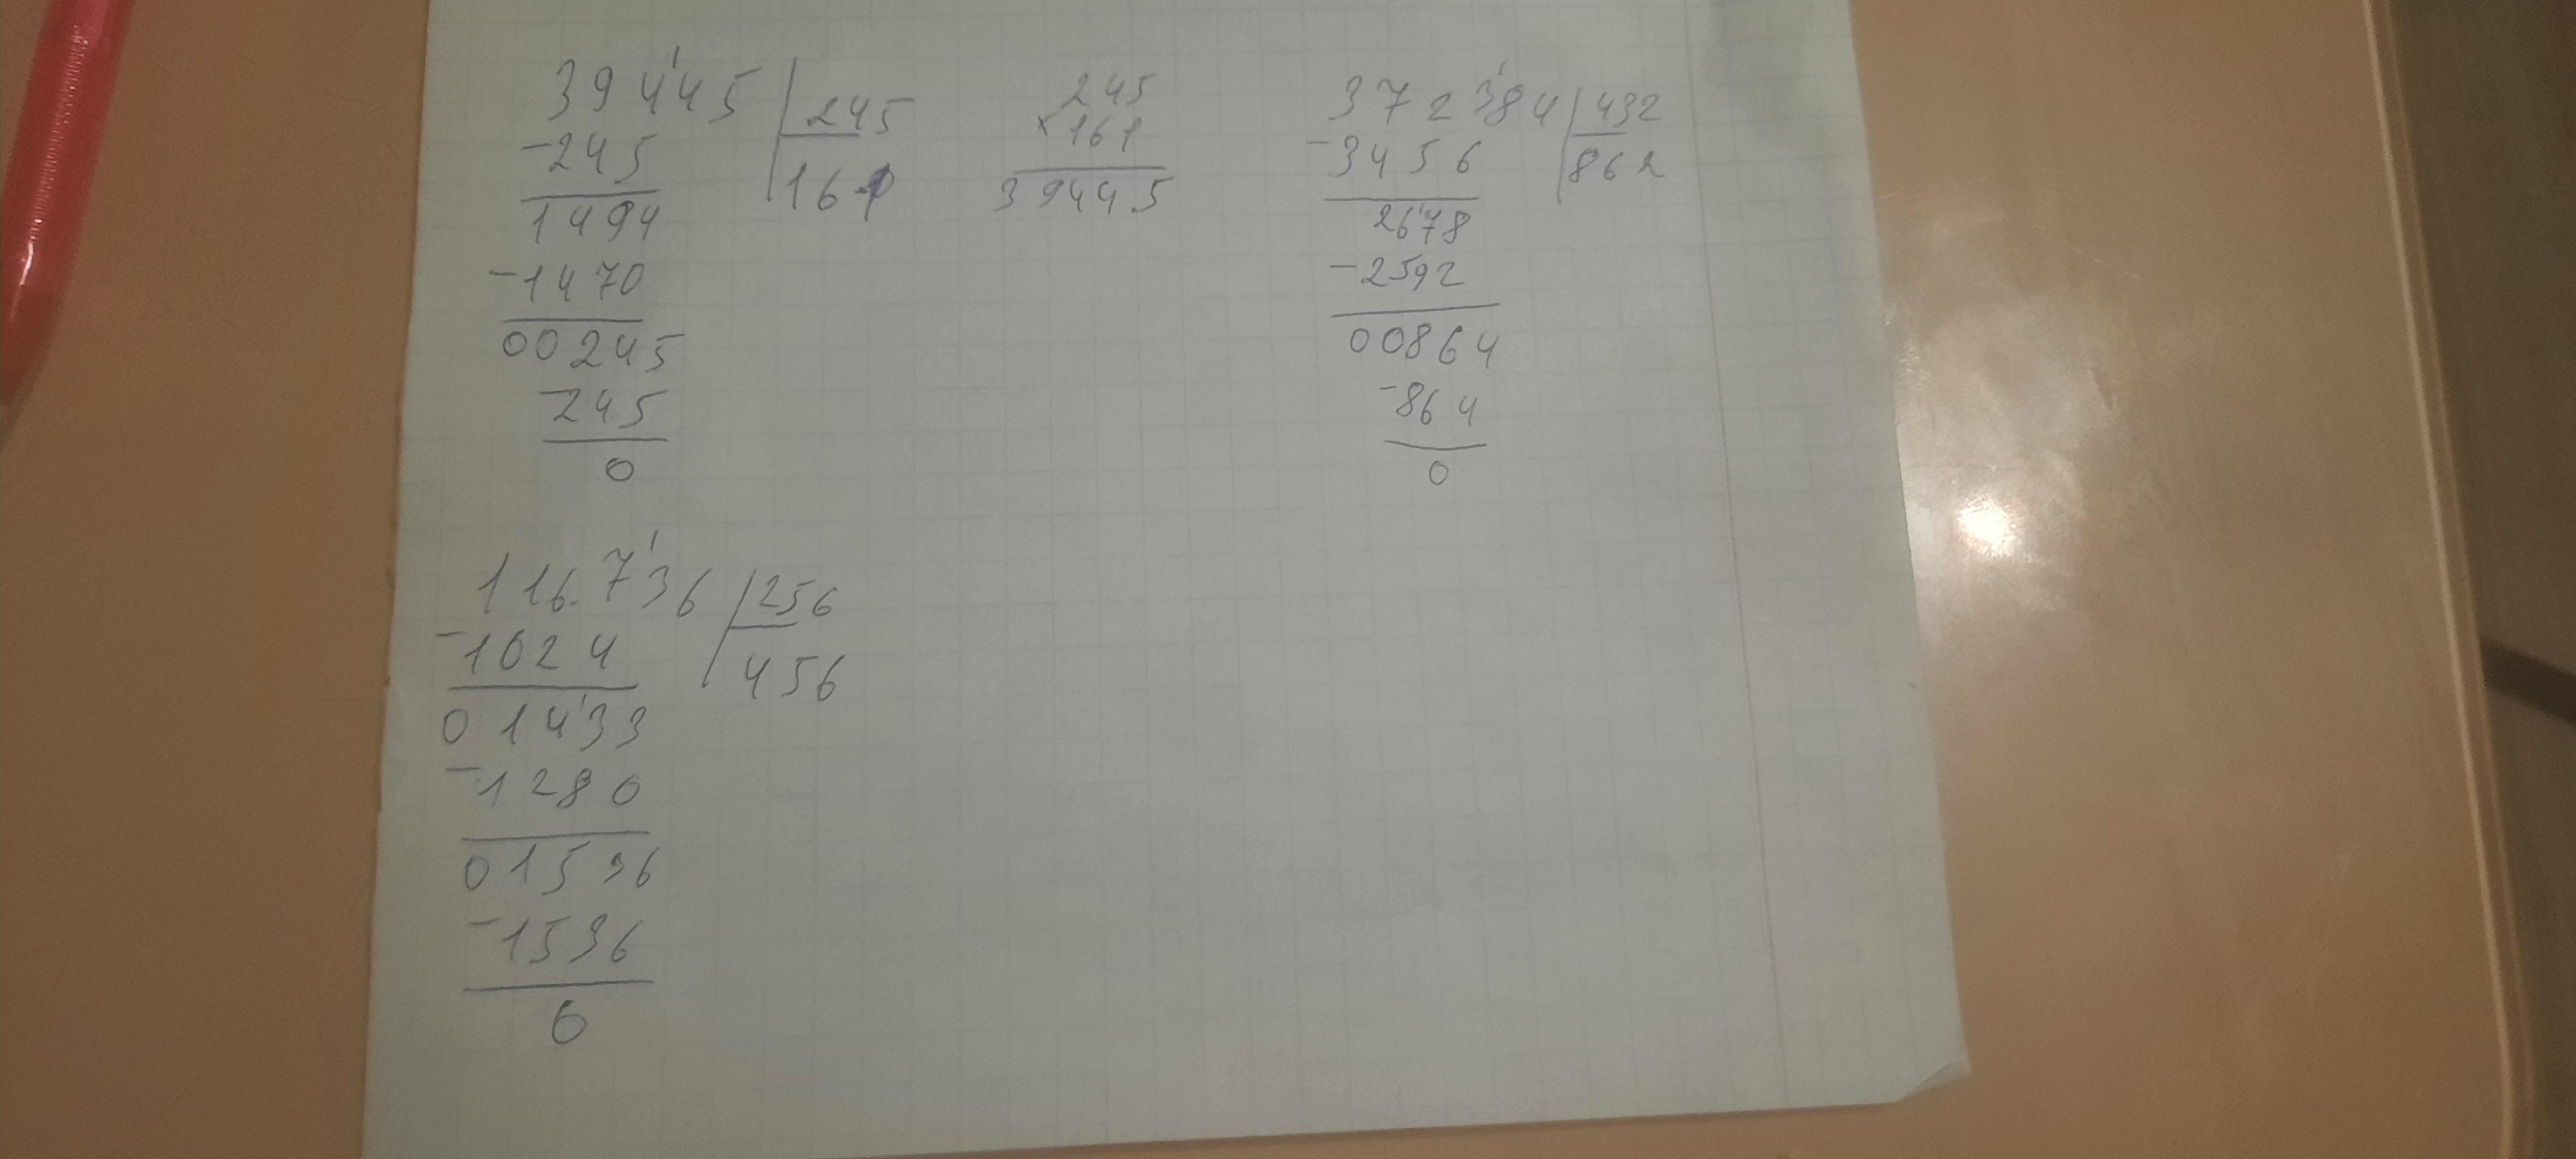 39445 | 245
-245
161
1494
-1470
00245
-245
0
245
×161
39445
372384 | 432
-3456
862
2678
-2592
00864
-864
0
116.736 | 256
-1024
456
01433
-1280
01536
-1536
0